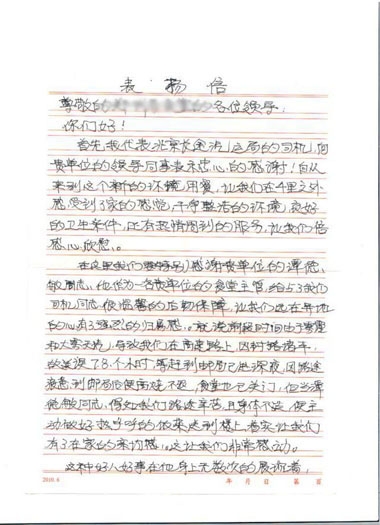 表扬信
尊敬的 各位领导:
你们好!
首先我代表北京 运局的司机,向
贵单位的领导同事表示衷心的感谢!自从
来到这个新的环境用餐,让我们在千里之外
感受到了家的感觉,干净整洁的环境,良好
的卫生条件,还有热情周到的服务,让我们倍
感心欣慰。
在这里我们要特别感谢贵单位的谭德
敏同志,他作为一名贵单位的食堂主管,给占了我们
司机同志很温馨的后勤保障,让我们远在异地
的心有了强烈的归属感。就说前段时间由于降雪
和大雾天 ,导致我们在高速路上,因封路堵车,
故 误7.8.个小时,等赶到邮局已是深夜,因路途
疲惫,到邮局后便 不已,食堂也已关门,但当谭
德敏同志,得知我们路途辛苦,且身体不 ,便主
动做好热呼呼的饭菜送到楼上,着实让我们
有了在家的亲切感。这让我们非常感动。
这种好人好事在他身上无数次的展 着,
2010.4 年 月 日 第 页